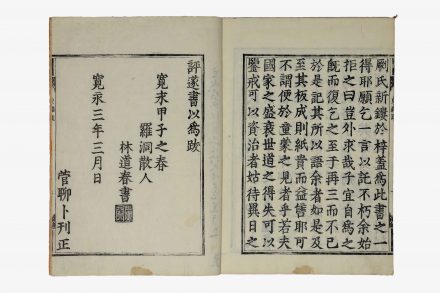 劉氏新鍥於梓蓋爲此書之一
得耶願乞一言以託不朽余始
拒之曰豈外求哉子宜自爲之
既而復乞之至于再三而不已
於是記其所以語余者如是及
至其板成則紙貴而益售耶可
不謂便於童蒙之見者乎若夫
國家之盛衰世道之得失可以
鑒戒可以資治者姑待異日之
評遂書以爲跋
寛永甲子之春
羅洞散人
林道春書
寛永三年三月日
菅聊卜刊正